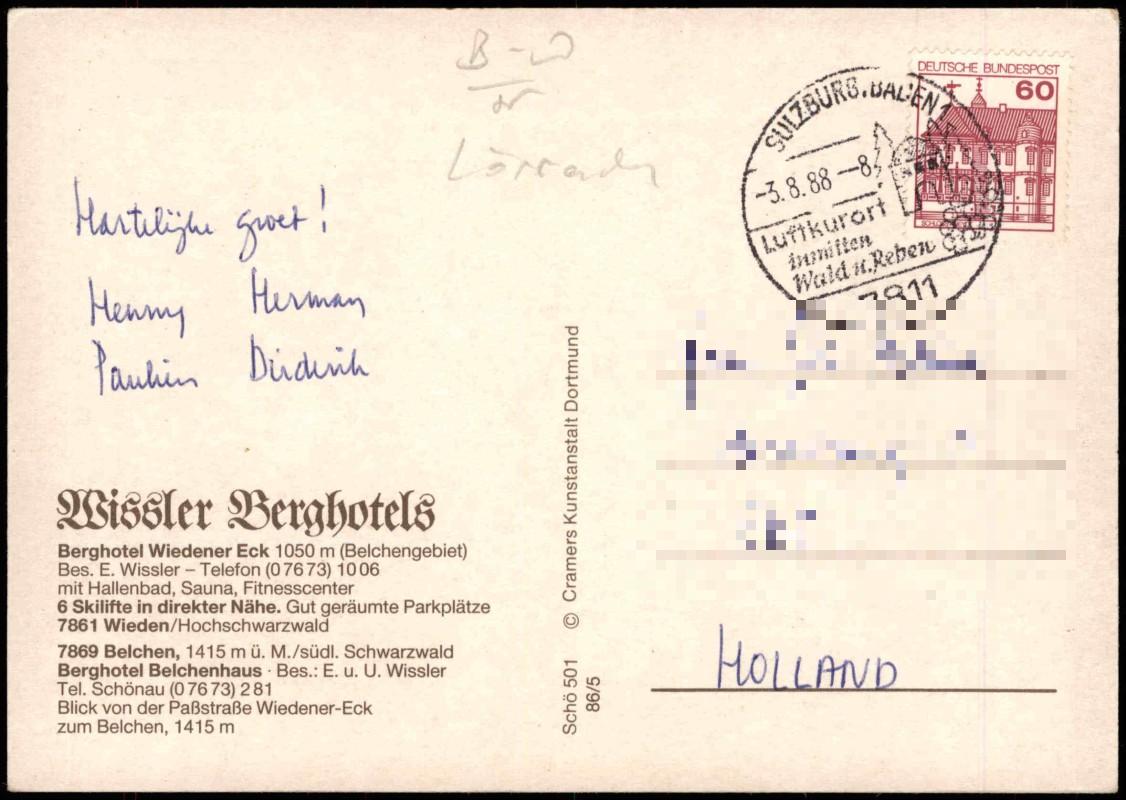 B-W
Lörrach
Hartelijke groet!
Henny Herman
Paulien Diederik
Wissler Berghotels
Berghotel Wiedener Eck 1050 m (Belchengebiet)
Bes. E. Wissler – Telefon (07673) 1006
mit Hallenbad, Sauna, Fitnesscenter
6 Skilifte in direkter Nähe. Gut geräumte Parkplätze
7861 Wieden/Hochschwarzwald
7869 Belchen, 1415 m ü. M./südl. Schwarzwald
Berghotel Belchenhaus · Bes.: E. u. U. Wissler
Tel. Schönau (07673) 281
Blick von der Paßstraße Wiedener-Eck
zum Belchen, 1415 m
Schö 501 © Cramers Kunstanstalt Dortmund
86/5
DEUTSCHE BUNDESPOST
60
SULZBURG, BADEN 1
-3.8.88-8
Luftkurort
inmitten
Wald u. Reben
7811
HOLLAND